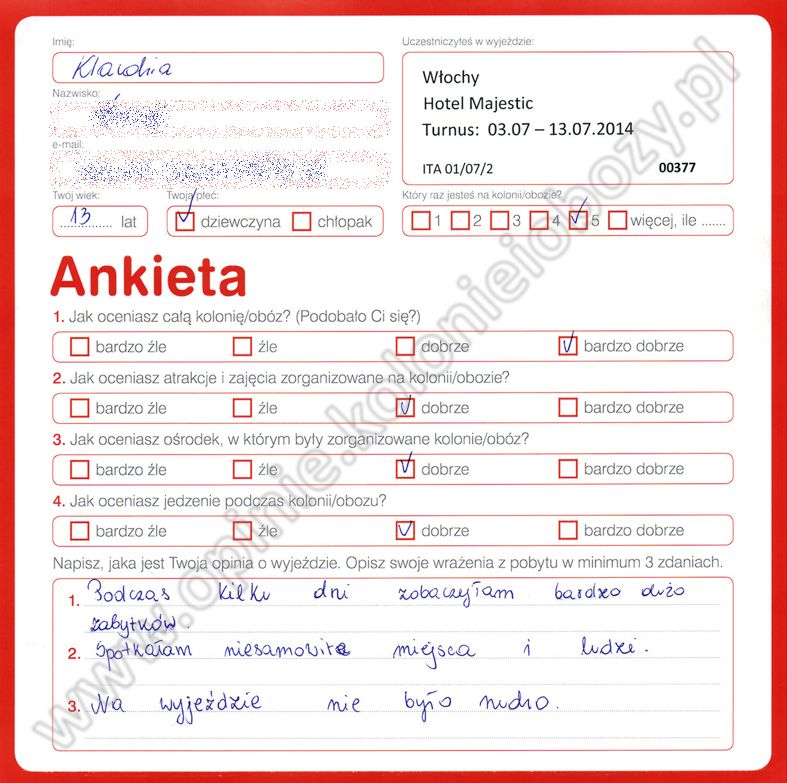 Imię:
Klaudia
Uczestniczyłeś w wyjeździe:
Włochy
Hotel Majestic
Turnus: 03.07 – 13.07.2014
ITA 01/07/2 00377
Nazwisko:
e-mail:
Twój wiek:
13 lat
Twoja płeć:
dziewczyna chłopak
Który raz jesteś na kolonii/obozie?
1 2 3 4 5 więcej, ile .......
Ankieta
1. Jak oceniasz całą kolonię/obóz? (Podobało Ci się?)
bardzo źle źle dobrze bardzo dobrze
2. Jak oceniasz atrakcje i zajęcia zorganizowane na kolonii/obozie?
bardzo źle źle dobrze bardzo dobrze
3. Jak oceniasz ośrodek, w którym były zorganizowane kolonie/obóz?
bardzo źle źle dobrze bardzo dobrze
4. Jak oceniasz jedzenie podczas kolonii/obozu?
bardzo źle źle dobrze bardzo dobrze
Napisz, jaka jest Twoja opinia o wyjeździe. Opisz swoje wrażenia z pobytu w minimum 3 zdaniach.
1. Podczas kilku dni zobaczyłam bardzo dużo
zabytków.
2. Spotkałam niesamowite miejsca i ludzi.
3. Na wyjeździe nie było nudno.
www.opinie.kolonieiobozy.pl